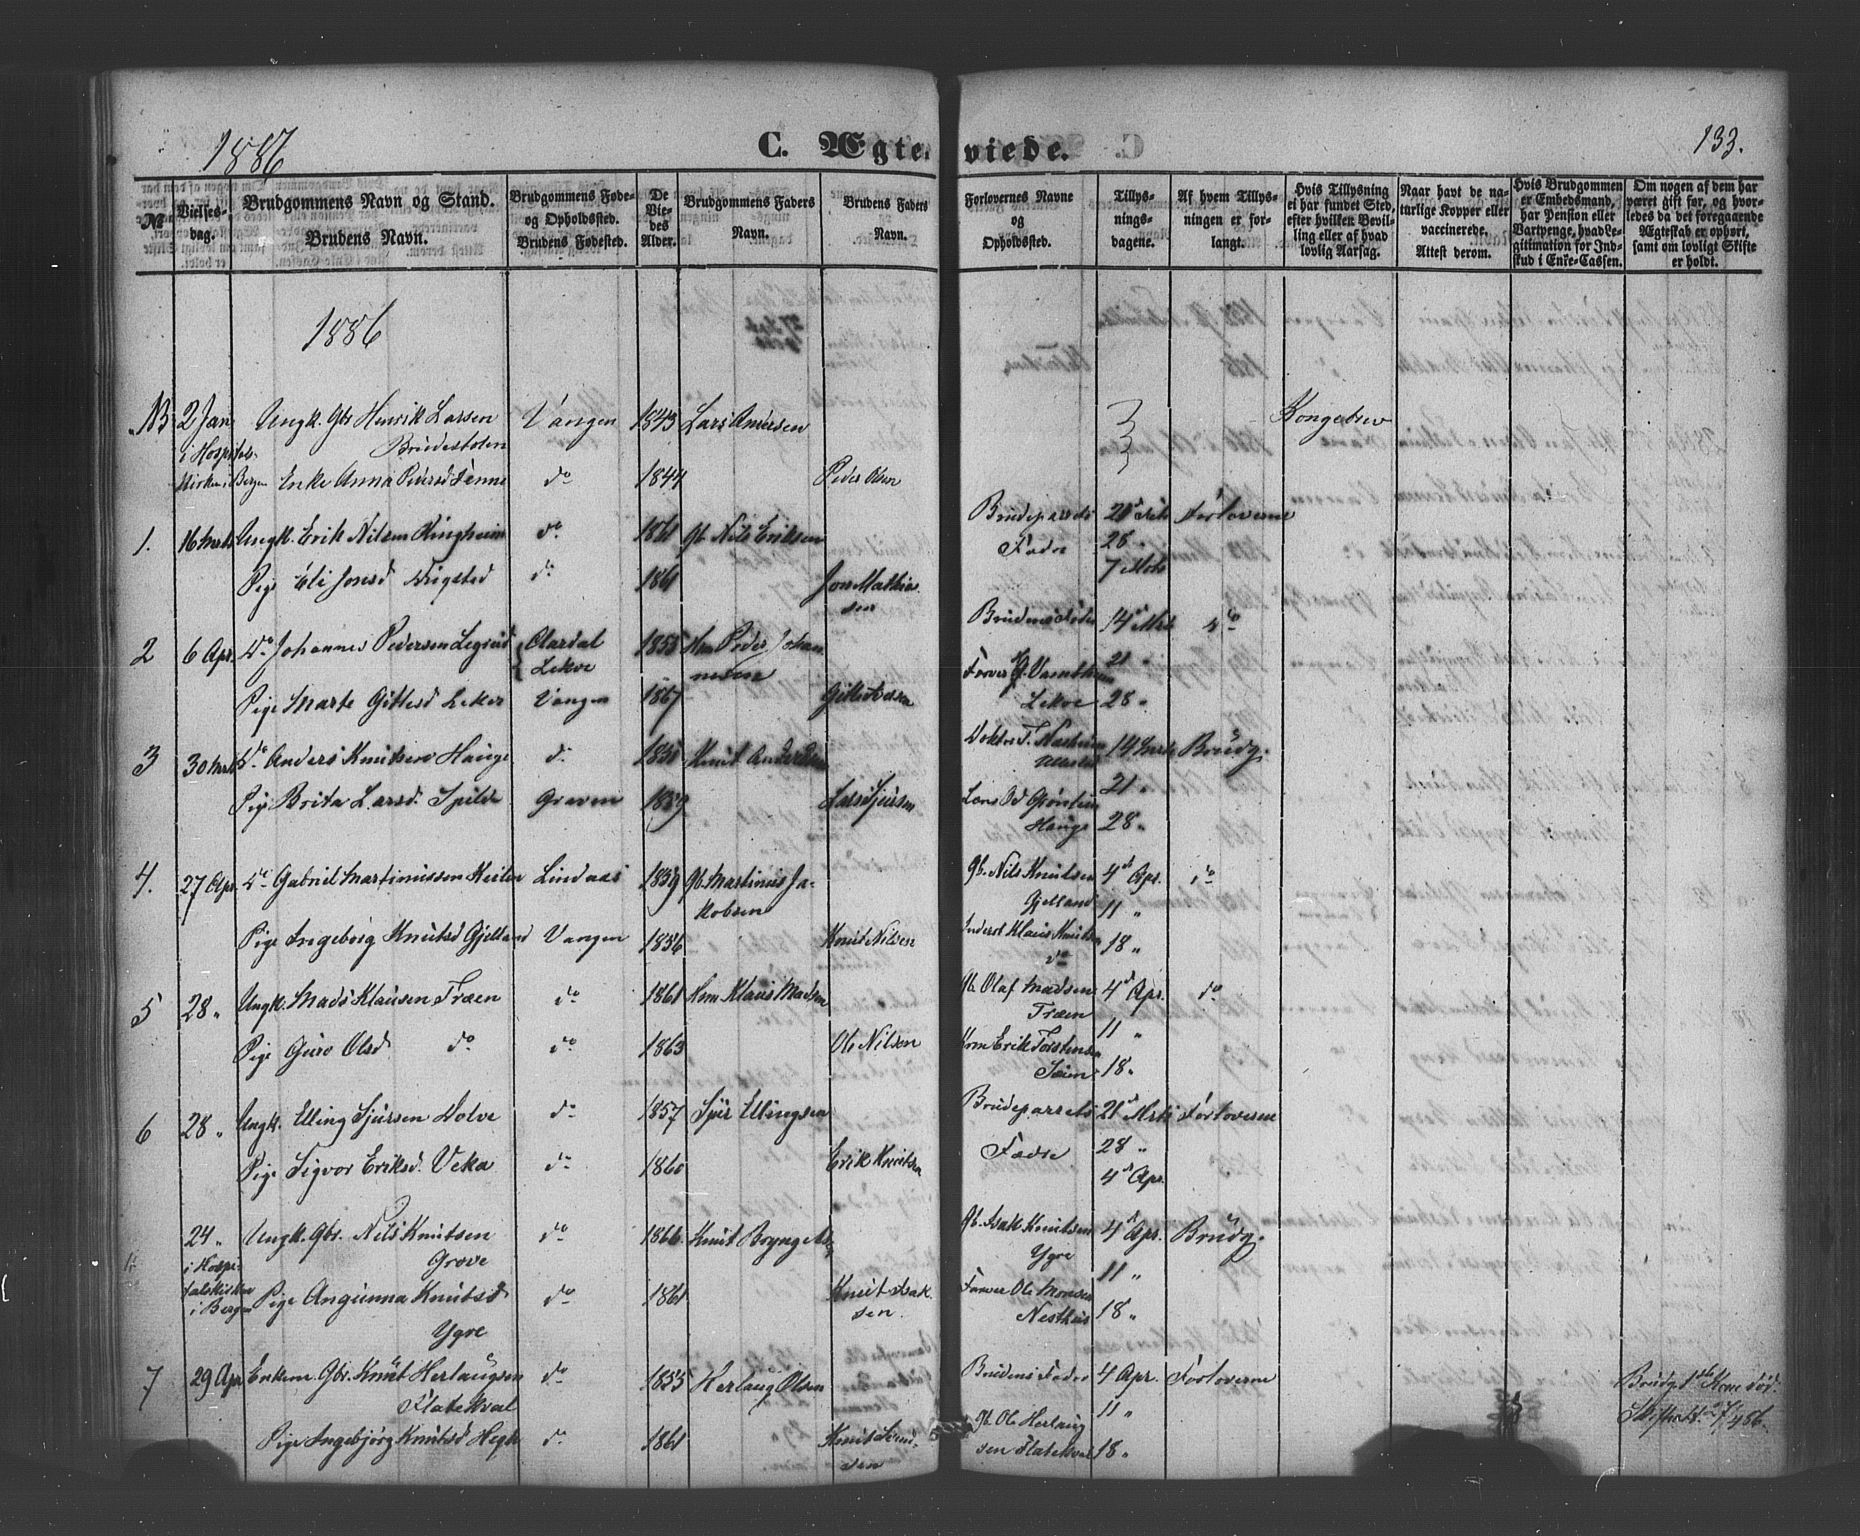 1886
C. Ægteviede.
133.
№
Vielsesdag.
Brudgommens Navn og Stand.
Brudens Navn.
Brudgommens Føde- og Opholdssted.
Brudens Fødested.
De Viedes Alder.
Brudgommens Faders Navn.
Brudens Faders Navn.
Forlovernes Navne og Opholdssted.
Tillysningsdagene.
Af hvem Tillysningen er forlangt.
Hvis Tillysning ei har fundet Sted, efter hvilken Bevilling eller af hvad lovlig Aarsag.
Naar havt de naturlige Kopper eller vaccinerede. Attest derom.
Hvis Brudgommen er Embedsmand, har Pension eller Vartpenge, hvad Legitimation for Indskud i Enke-Cassen.
Om nogen af dem har været gift før, og hvorledes da det foregaaende Ægteskab er ophørt, samt om lovligt Skifte er holdt.
1886
NB 2 Jan Ungk. Gbr Henrik Larsen Vangen 1843 Lars Andersen Kongebrev
i Hospitals- Brudestolen
kirken i Bergen Enke Anna Pedersd Tenne do 1844 Peder Olsen
1. 16 Marts Ungk. Erik Nilsen Ringheim do 1861 Gb. Nils Eriksen Brudeparrets 21 Feb Forloverne
Fædre 28 "
Pige Eli Jonsd do 1861 Jon Mathiasen 7 Mrts
2 6 Apr. do Johannes Pedersen Legreid Aardal 1855 Peder Johannesen Brudens Fader 14 Mrts do
Lekve 21 "
Pige Marte Gittlesd Lekve Vangen 1867 Farver
Lekve 28 "
3 30 Mrts do Anders Knutsen Hauge do 1851 Knut Andersen Doktor T. 14 Marts Brudg.
21 "
Pige Brita Larsd. Spilde Graven 1859 Lars Sjursen Lars
Hauge 28 "
4. 27 Apr. do Gabriel Martinussen Lindaas 1859 Gb. Martinus Jakobsen Gb. Nils Knutsen 4 Apr. do
Gjelland 11 "
Pige Ingeborg Knutsd Gjelland Vangen 1856 Knut Nilsen Inderst Klaus Knutsen 18 "
do
5 28 " Ungk. Mads Klausen Træen do 1861 Klaus Madsen Gb. Olaf Madsen 4 Apr. do
Træen 11 "
Pige Guro Olsd. do do 1863 Ole Nilsen Erik Torstensen
18 "
6 28 " Ungk. Elling Sjursen Dolve do 1857 Sjur Ellingsen Brudeparrets 21 Mrts Forloverne
Pige Sigvor Eriksd. Veka do 1860 Erik Knutsen Fædre 28 "
4 Apr.
24 " Ungk. Gbr. Nils Knutsen do 1866 Knut Gb. Isak Knutsen 4 Apr. Brudg.
i Hospi- Grove Ygre 11 "
talskirken Pige Angunna Knutsd do 1861 Knut Isaksen. Farver Ole Monsen
i Bergen Ygre Nesthus 18 "
7 29 Apr Enkem. Gbr. Knut Herlaugsen do 1853 Herlaug Olsen Brudens Fader 4 Apr. Forloverne Brudg. 1ste Kone død.
Flatekval 11 "
Pige Ingebjørg Knutsd do 1861 Gb. Ole Herlaug
sen Flatekval 18 "